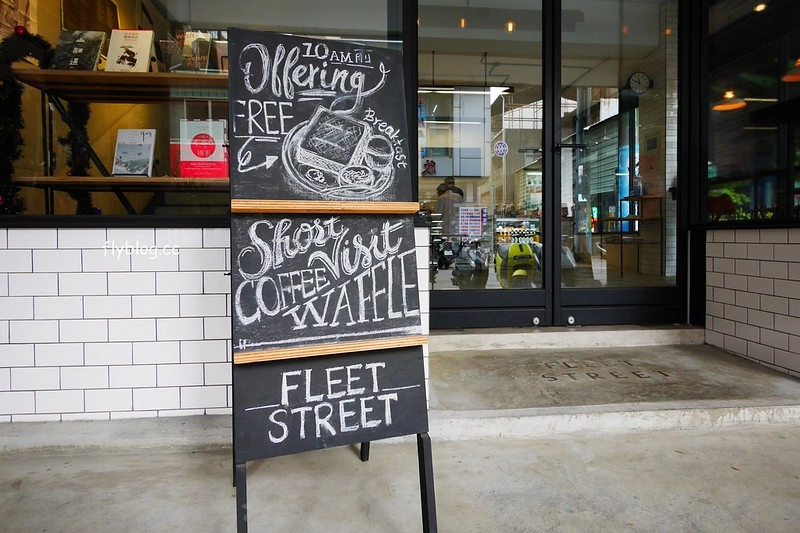 10 AM前
Offering
FREE
Breakfast
Short
Visit
COFFEE
WAFFLE
FLEET
STREET
flyblog.cc
FLEET
STREET